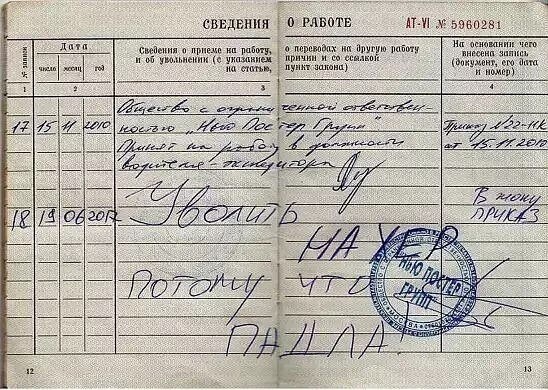 СВЕДЕНИЯ О РАБОТЕ
АТ-VI № 5960281
№ записи
Дата
число месяц год
Сведения о приеме на работу, о переводах на другую работу
и об увольнении (с указанием причин и со ссылкой
на статью, пункт закона)
На основании чего
внесена запись
(документ, его дата
и номер)
1 2 3 4
Общество с ограниченной ответствен-
17 15 11 2010 ностью "Нью Постер Групп" Приказ №22-НК
Принят на работу в должности от 15.11.2010
водителя-экспедитора
18 19 06 2017 Уволить В жопу
ПРИКАЗ
НАХЕР
ПОТОМУ ЧТО
ПАДЛА!
НЬЮ ПОСТЕР
ГРУПП
МОСКВА
12 13